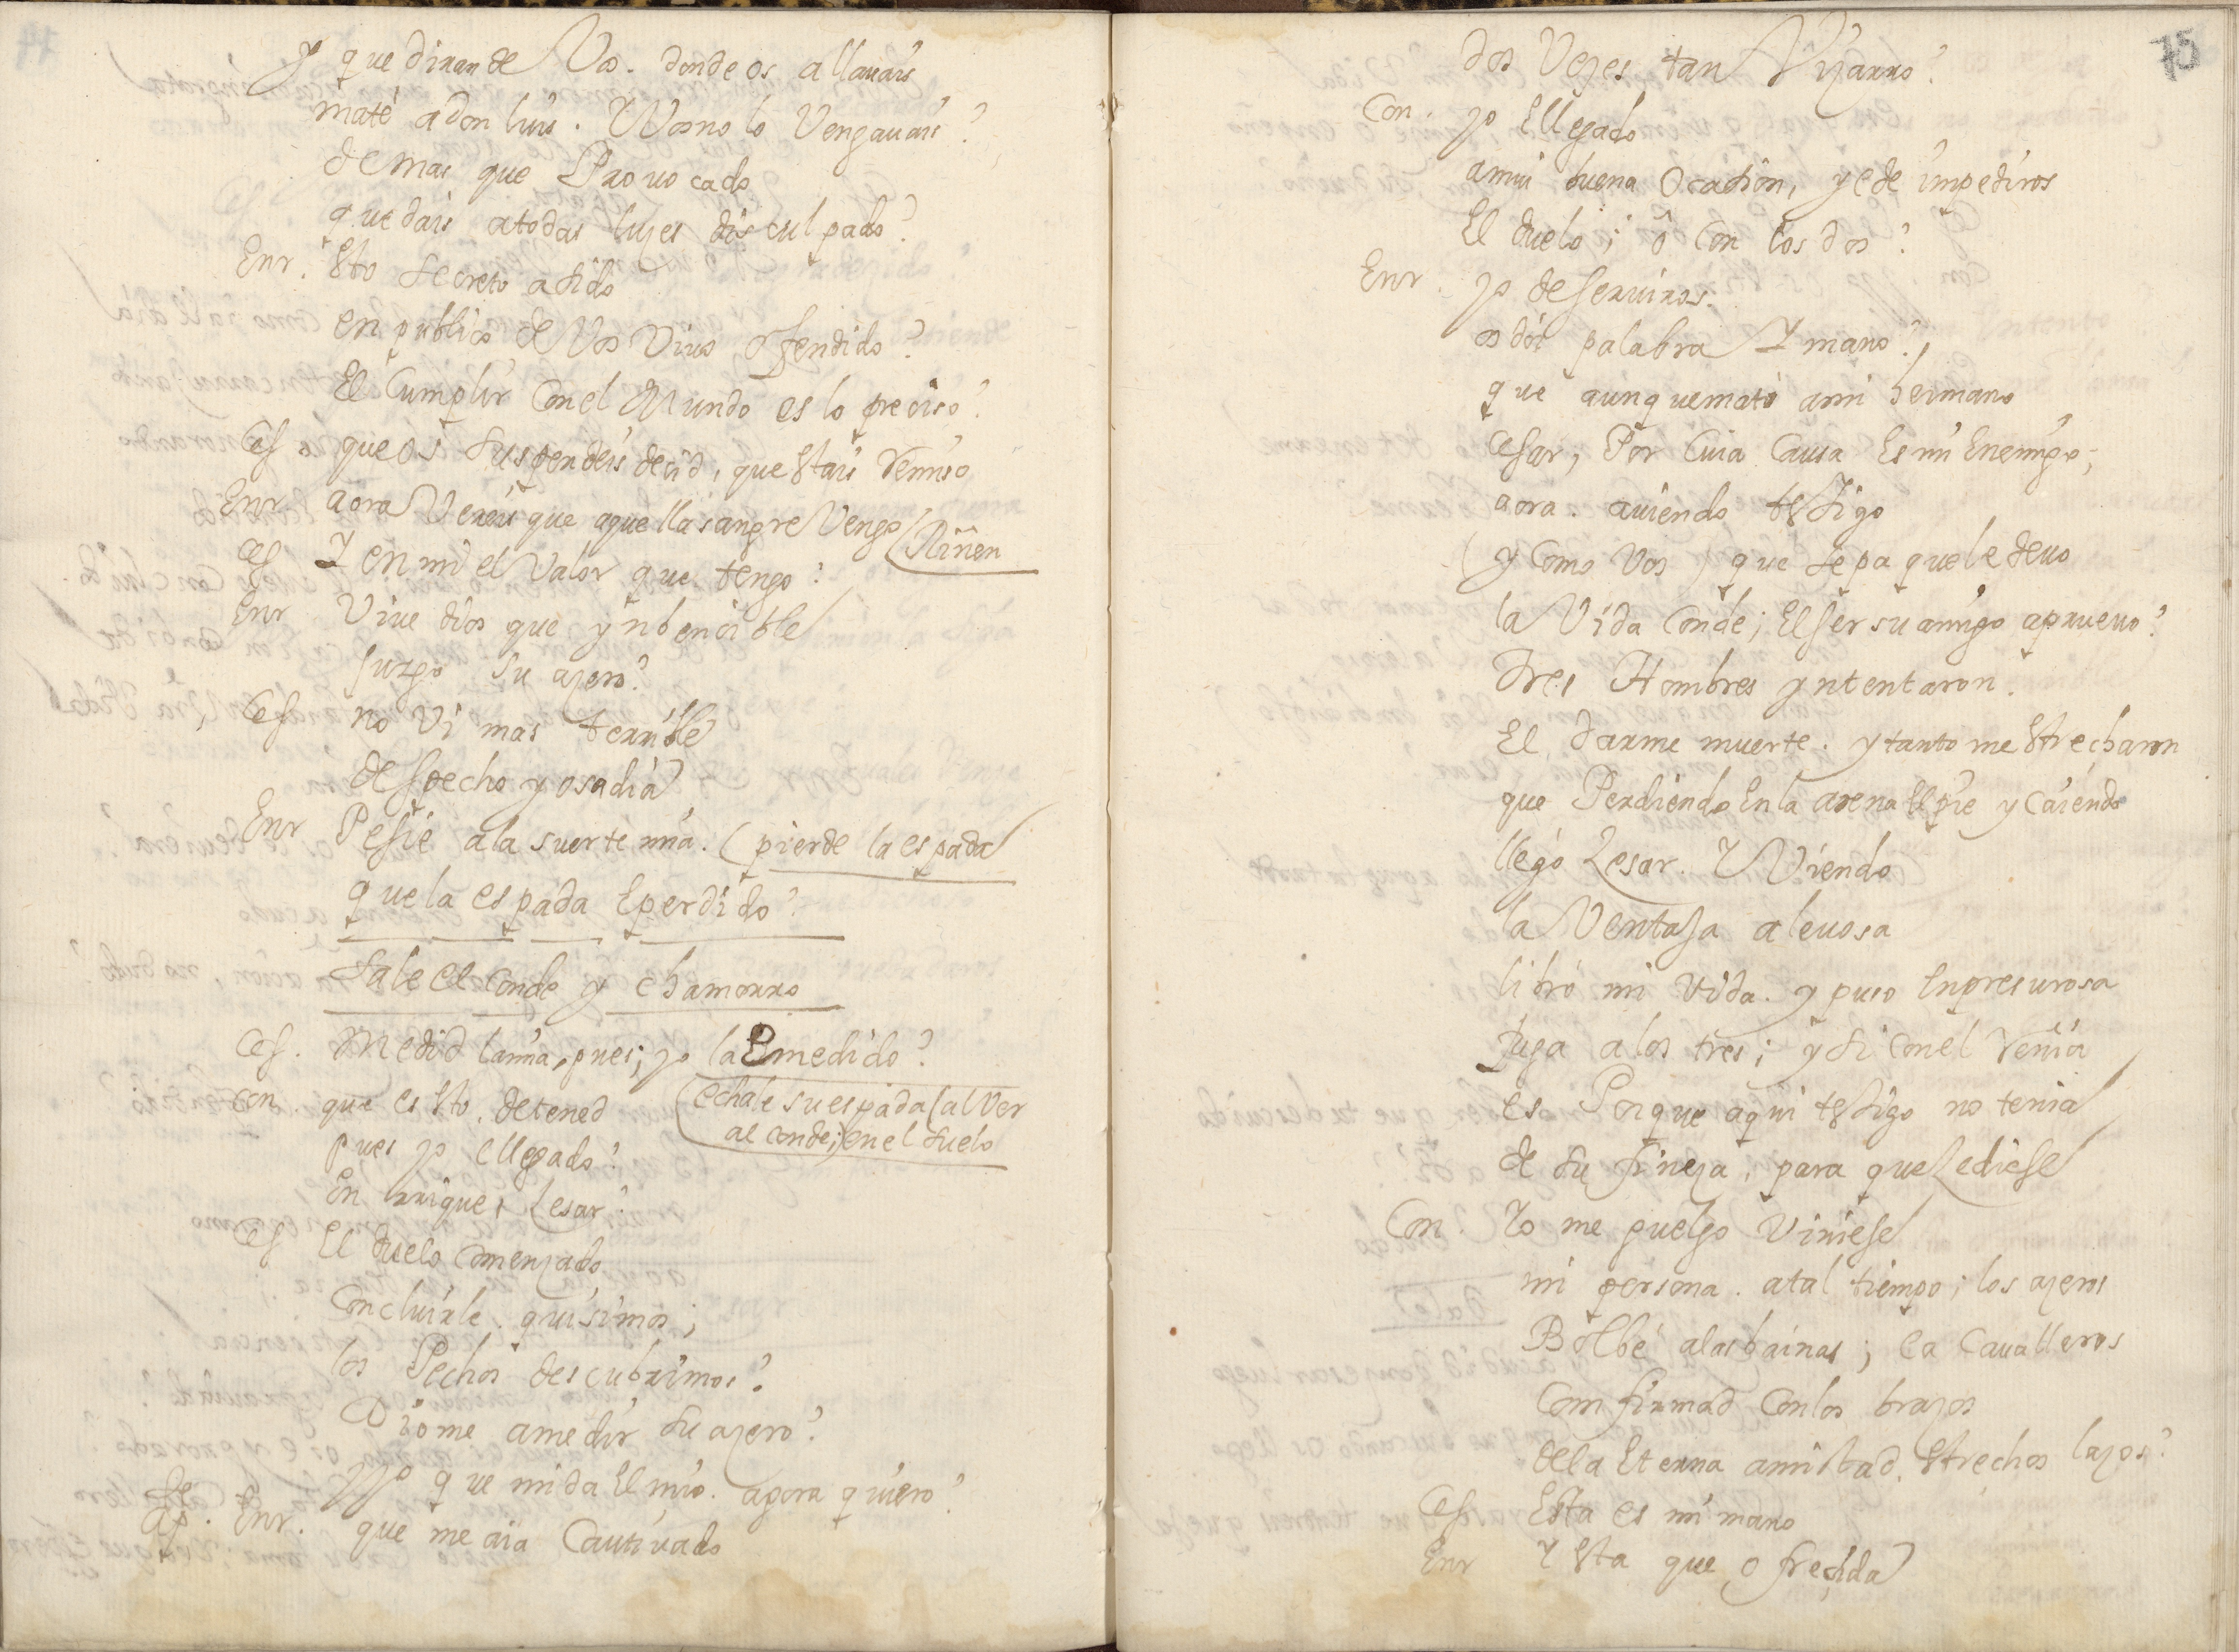 y que diran de Vos. donde os allauais
maté a don luis. Y Vos no lo Vengauais?
demas que Prouocado
quedais a todas luzes disculpado?
Enr. Esto secreto a sido
en publico de Vos Viuo ofendido?
El Cumplir con el Mundo es lo preciso?
Ces. que os suspendeis decid, que estais remiso
Enr aora Vereis que aquella sangre Vengo (Riñen
Ces Y en mi el Valor que tengo?
Enr Viue dios que ynbencible
juzgo su azero?
Ces no Vi mas terrible
despecho y osadia
Enr Pesie a la suerte mia. (pierde la espada
que la espada E perdido?
sale el conde y chamorro
Ces. Medid la mia, pues; yo la E medido?
con. que es esto. detened (echale su espada (al Ver
al conde;) en el suelo
pues yo e llegado?
Enrrique, Zesar?
Ces El duelo Comenzado
Concluirle. quisimos;
los Pechos descubrimos?
Diome a medir su azero?
y yo que mida El mio. agora quiero?
ap. Enr. que me aia Cautiuado
75
dos Vezes tan Vizarro?
Con. yo E llegado
a mui buena Ocasion, y e de impediros
El duelo; ó Con los dos?
Enr. yo de seruiros.
os doi palabra Y mano?,
que aunque mató a mi hermano
Cesar, Por Cuia Causa Es mi Enemigo;
aora. auiendo testigo
(y Como Vos) que sepa que le deuo
la Vida Conde; El ser su amigo aprueuo?
Tres Hombres yntentaron.
El darme muerte. y tanto me Estrecharon
que Perdiendo En la arena El pie y Caiendo
llegó Zesar. Y Viendo
la Ventaja aleuosa
libró mi Vida. y puso En presurosa
fuga a los tres; y si Con el Renia
es Porque aqui testigo no tenia
de su fineza, para que Zediese
Con. Yo me guelgo Viniese
mi persona. a tal tiempo; los azeros
Bolbé a las bainas; Ea Caualleros
Comfirmad Con los brazos
de la Eterna amistad. Estrechos lazos?
Ces Esta es mi mano
Enr Y Esta que ofrecida